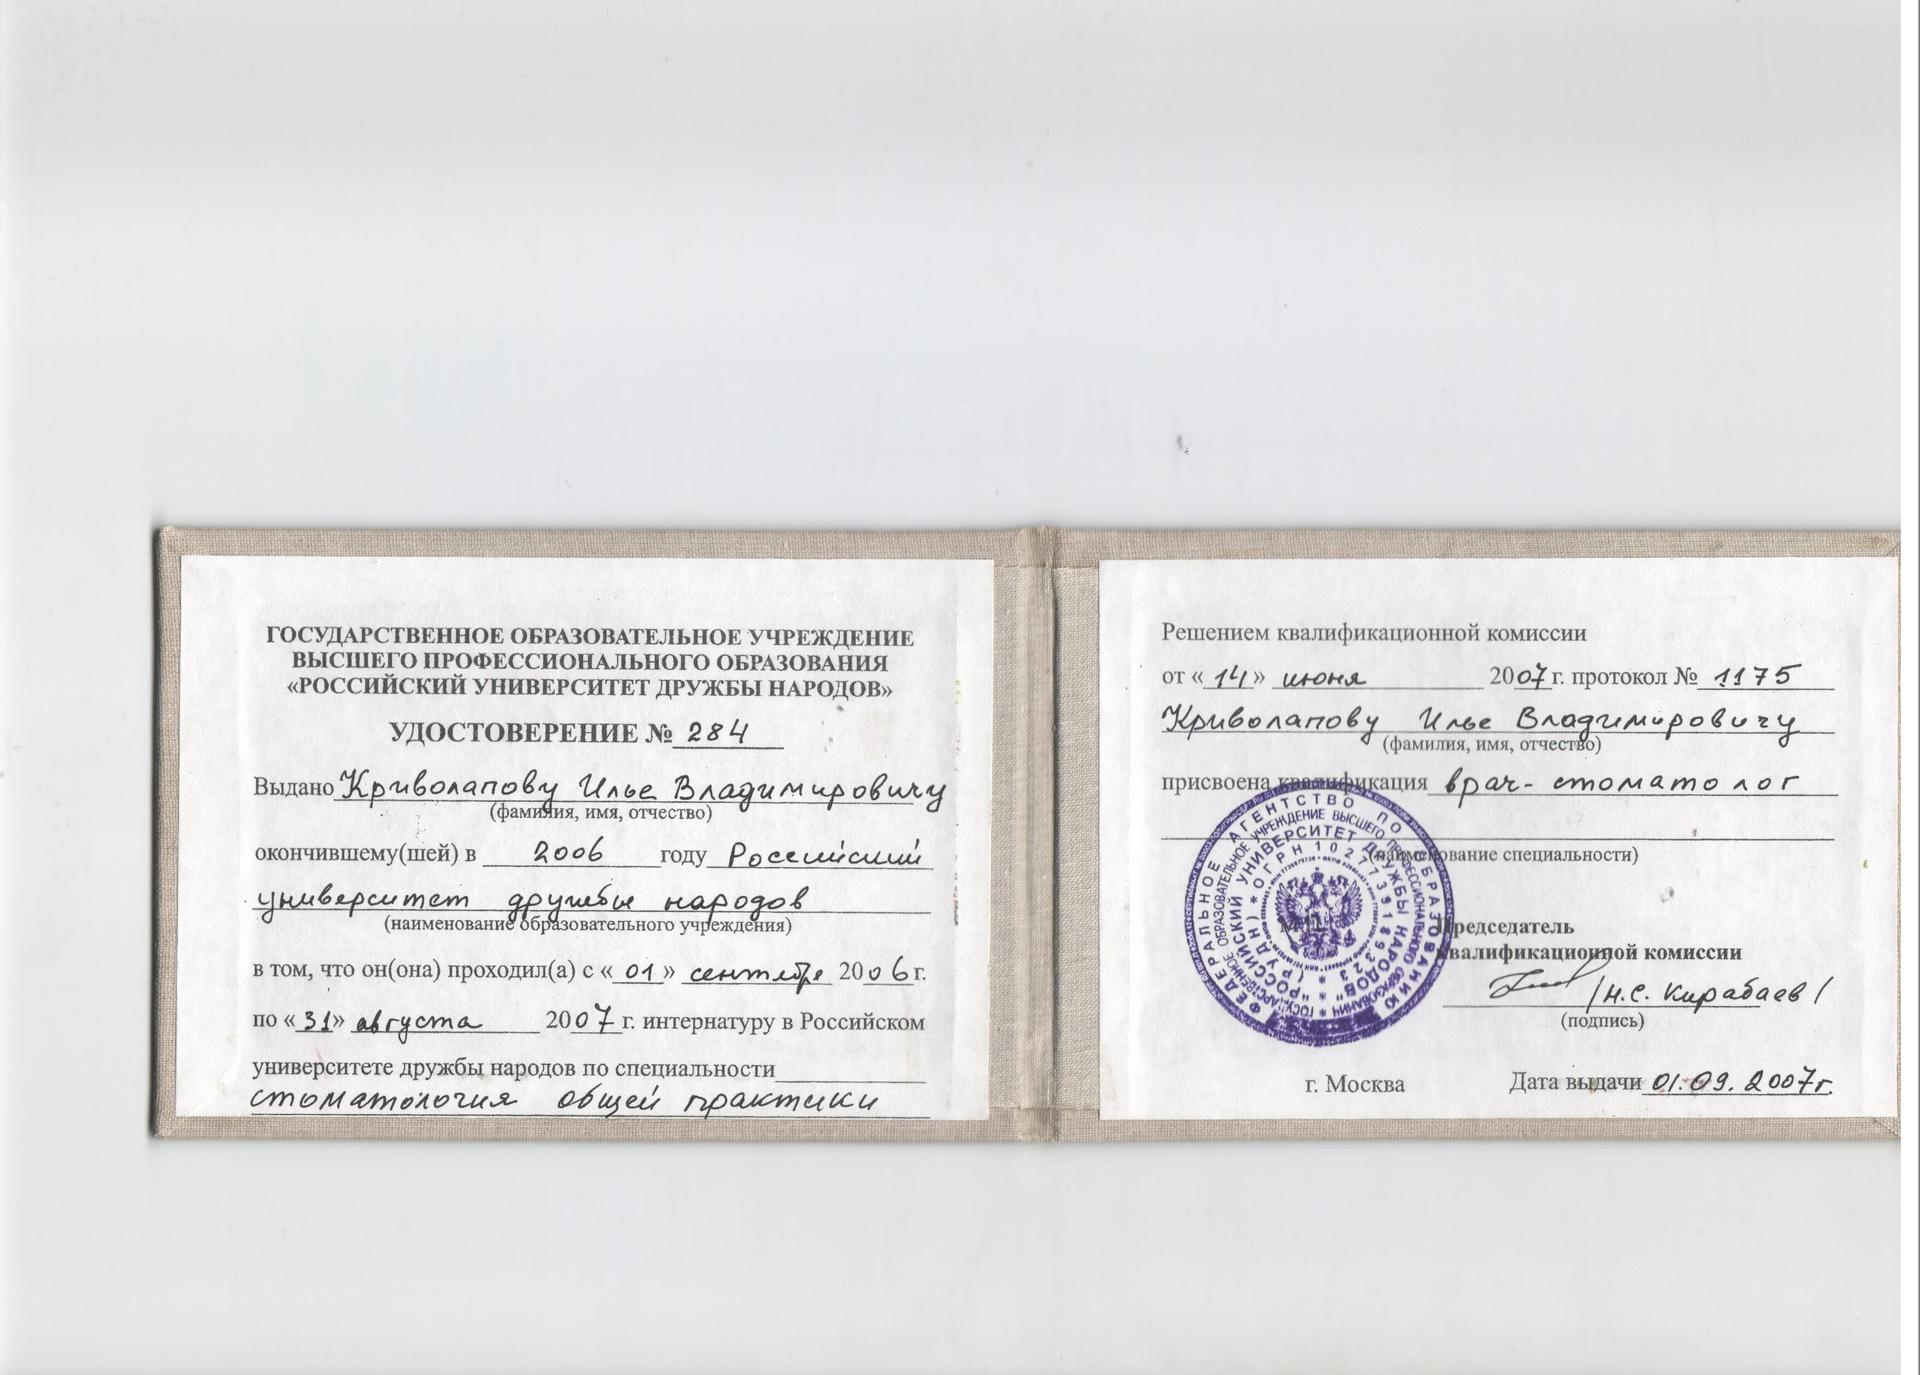 ГОСУДАРСТВЕННОЕ ОБРАЗОВАТЕЛЬНОЕ УЧРЕЖДЕНИЕ
ВЫСШЕГО ПРОФЕССИОНАЛЬНОГО ОБРАЗОВАНИЯ
«РОССИЙСКИЙ УНИВЕРСИТЕТ ДРУЖБЫ НАРОДОВ»
УДОСТОВЕРЕНИЕ № 284
Выдано Криволапову Илье Владимировичу
(фамилия, имя, отчество)
окончившему(шей) в 2006 году Российский
университет дружбы народов
(наименование образовательного учреждения)
в том, что он(она) проходил(а) с «01» сентября 2006г.
по «31» августа 2007г. интернатуру в Российском
университете дружбы народов по специальности
стоматология общей практики
Решением квалификационной комиссии
от «14» июня 2007г. протокол № 1175
Криволапову Илье Владимировичу
(фамилия, имя, отчество)
присвоена квалификация врач-стоматолог
(наименование специальности)
М.П.
Председатель
квалификационной комиссии
/Н.С. Кирабаев/
(подпись)
г. Москва Дата выдачи 01.09.2007г.
ФЕДЕРАЛЬНОЕ АГЕНТСТВО ПО ОБРАЗОВАНИЮ
ГОСУДАРСТВЕННОЕ ОБРАЗОВАТЕЛЬНОЕ УЧРЕЖДЕНИЕ ВЫСШЕГО ПРОФЕССИОНАЛЬНОГО ОБРАЗОВАНИЯ
"РОССИЙСКИЙ УНИВЕРСИТЕТ ДРУЖБЫ НАРОДОВ"
(РУДН) * ОГРН 1027739189323 *